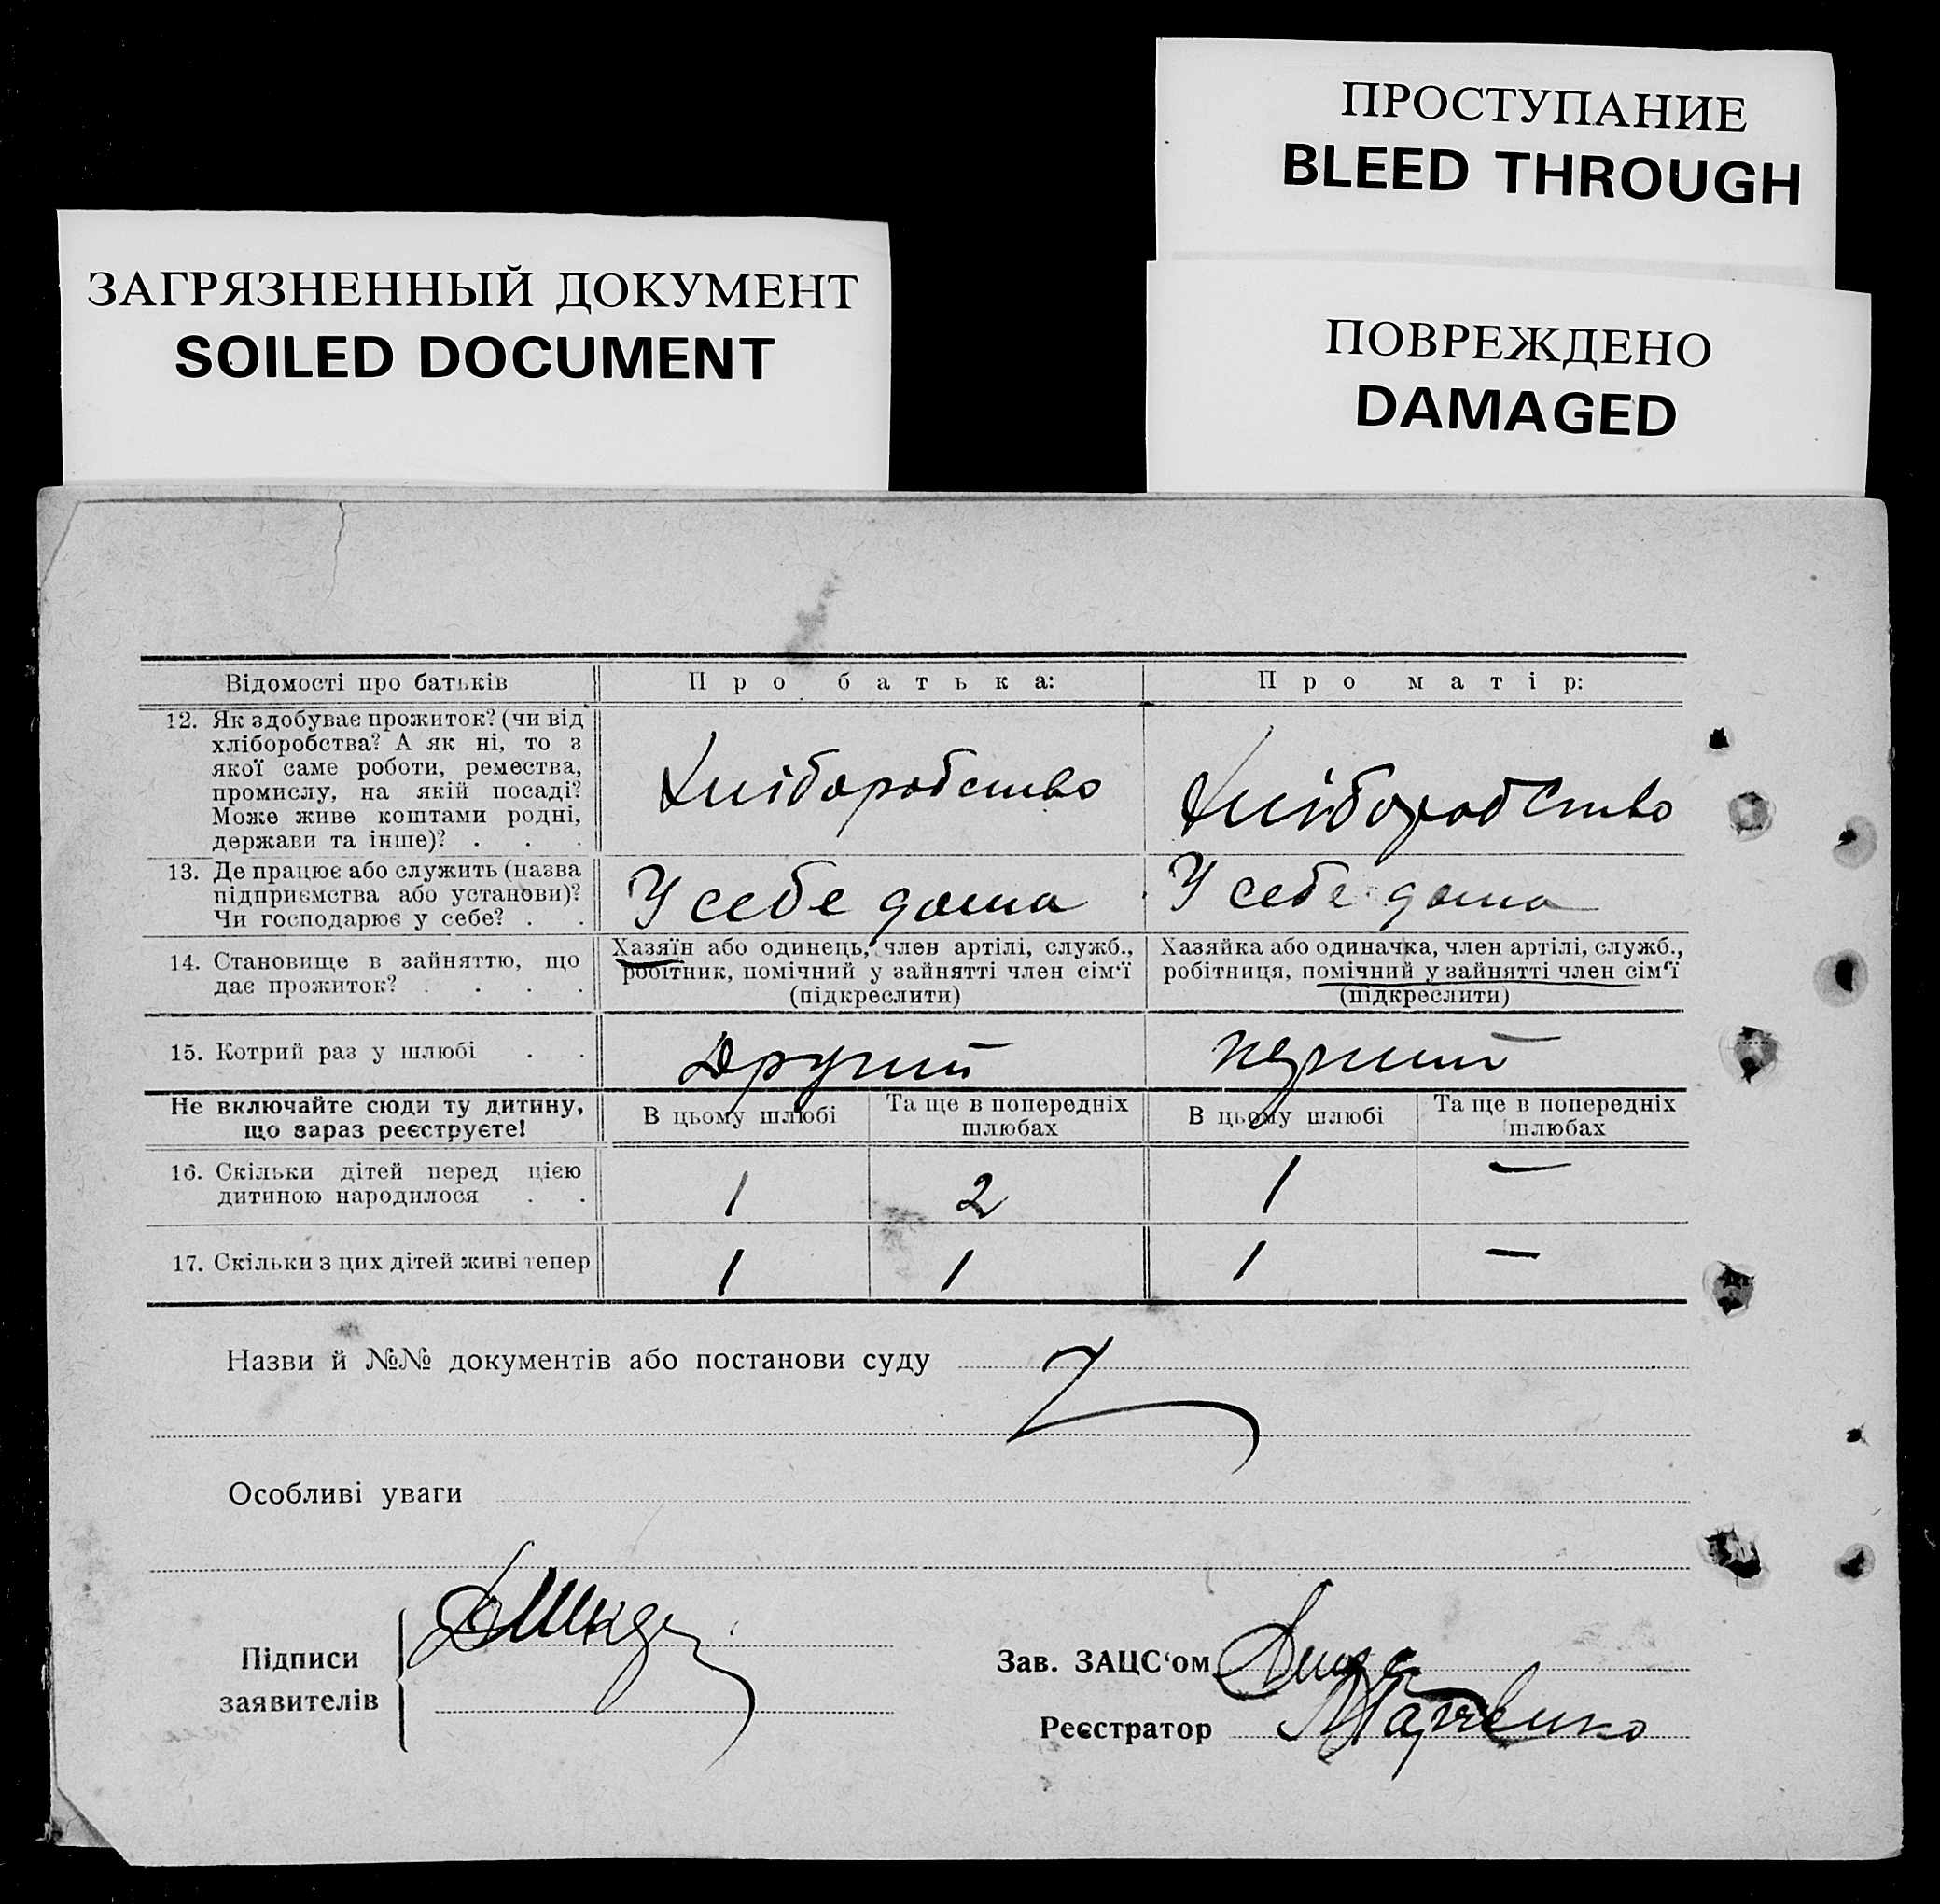 ПРОСТУПАНИЕ
BLEED THROUGH
ЗАГРЯЗНЕННЫЙ ДОКУМЕНТ
SOILED DOCUMENT
ПОВРЕЖДЕНО
DAMAGED
Відомості про батьків
Про батька:
Про матір:
12. Як здобуває прожиток? (чи від
хліборобства? А як ні, то з
якої саме роботи, ремества,
промислу, на якій посаді?
Може живе коштами родні,
держави та інше)? . . .
Хліборобство
Хліборобство
13. Де працює або служить (назва
підприємства або установи)?
Чи господарює у себе? . .
У себе дома
У себе дома
14. Становище в зайняттю, що
дає прожиток? . . . .
Хазяїн або одинець, член артілі, служб.,
робітник, помічний у зайнятті член сім'ї
(підкреслити)
Хазяйка або одиначка, член артілі, служб.,
робітниця, помічний у зайнятті член сім'ї
(підкреслити)
15. Котрий раз у шлюбі . .
Другий
перший
Не включайте сюди ту дитину,
що зараз реєструєте!
В цьому шлюбі
Та ще в попередніх
шлюбах
В цьому шлюбі
Та ще в попередніх
шлюбах
16. Скільки дітей перед цією
дитиною народилося . .
1
2
1
—
17. Скільки з цих дітей живі тепер
1
1
1
—
Назви й №№ документів або постанови суду
Особливі уваги
Підписи
заявителів
Зав. ЗАЦС'ом
Реєстратор